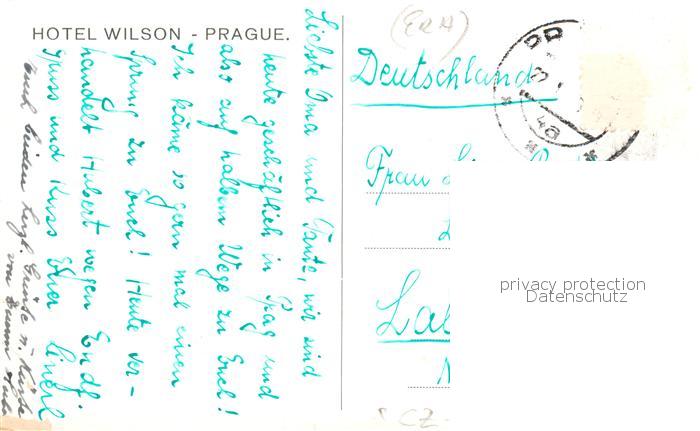 HOTEL WILSON - PRAGUE.
Liebste Oma und Tante, wir sind
heute geschäftlich in Prag und
also auf halbem Wege zu Euch!
Ich käme so gern mal einen
Sprung zu Euch! Heute ver-
handelt Hubert wegen Endf.
Gruss und Kuss Eher Linerl
auch beiden herzl. Grüße u. Küsse
von Eurem
Deutschland
Frau
CZ-
privacy protection
Datenschutz